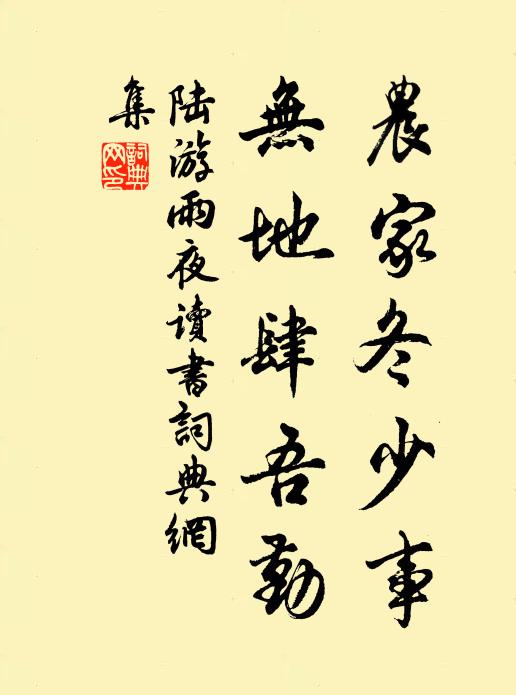 農家冬少事
無地肆吾勤
陆游雨夜讀書詞典網
集
詞典
网印